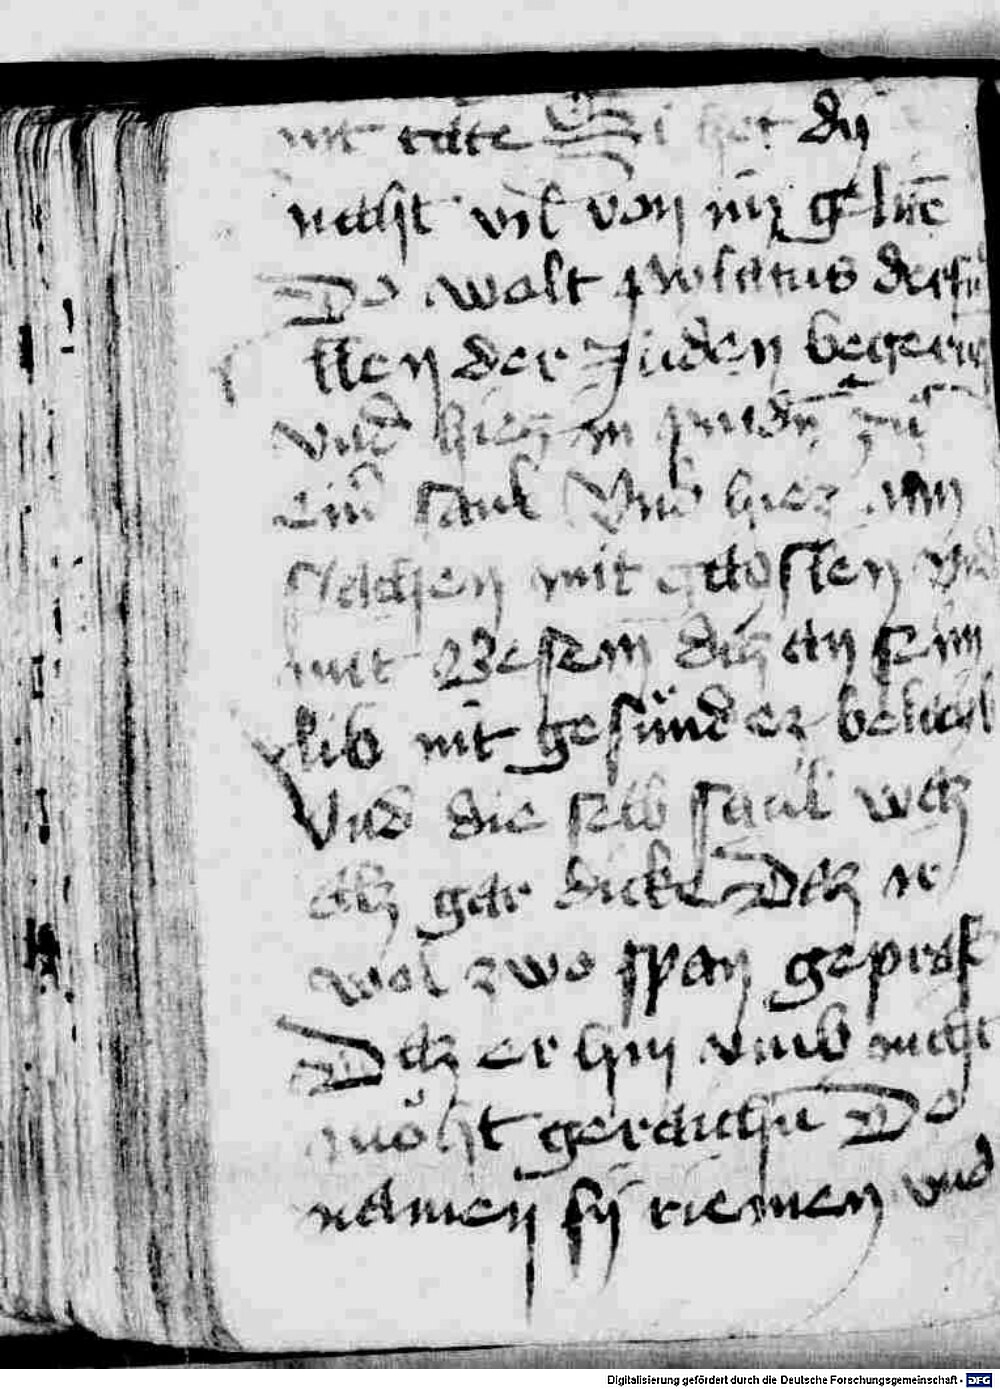 nit täte Si het dÿ
naht vil von mir gelitē
Do wolt pylatus derfu
llen der Juden begerūg
vnd hiez in pindē zů
ein saul Vnd hiez inn
slachen mit gaislen vnd
mit Besem̄ diz an seim
lib nit gesünder belaib
Vnd die selb saul waz
alz gar dicke Daz er
wol zwo span geprast
Daz er hin vmb nicht
möht geraichn Do
namen sÿ riemen vnd
Digitalisierung gefördert durch die Deutsche Forschungsgemeinschaft - DFG